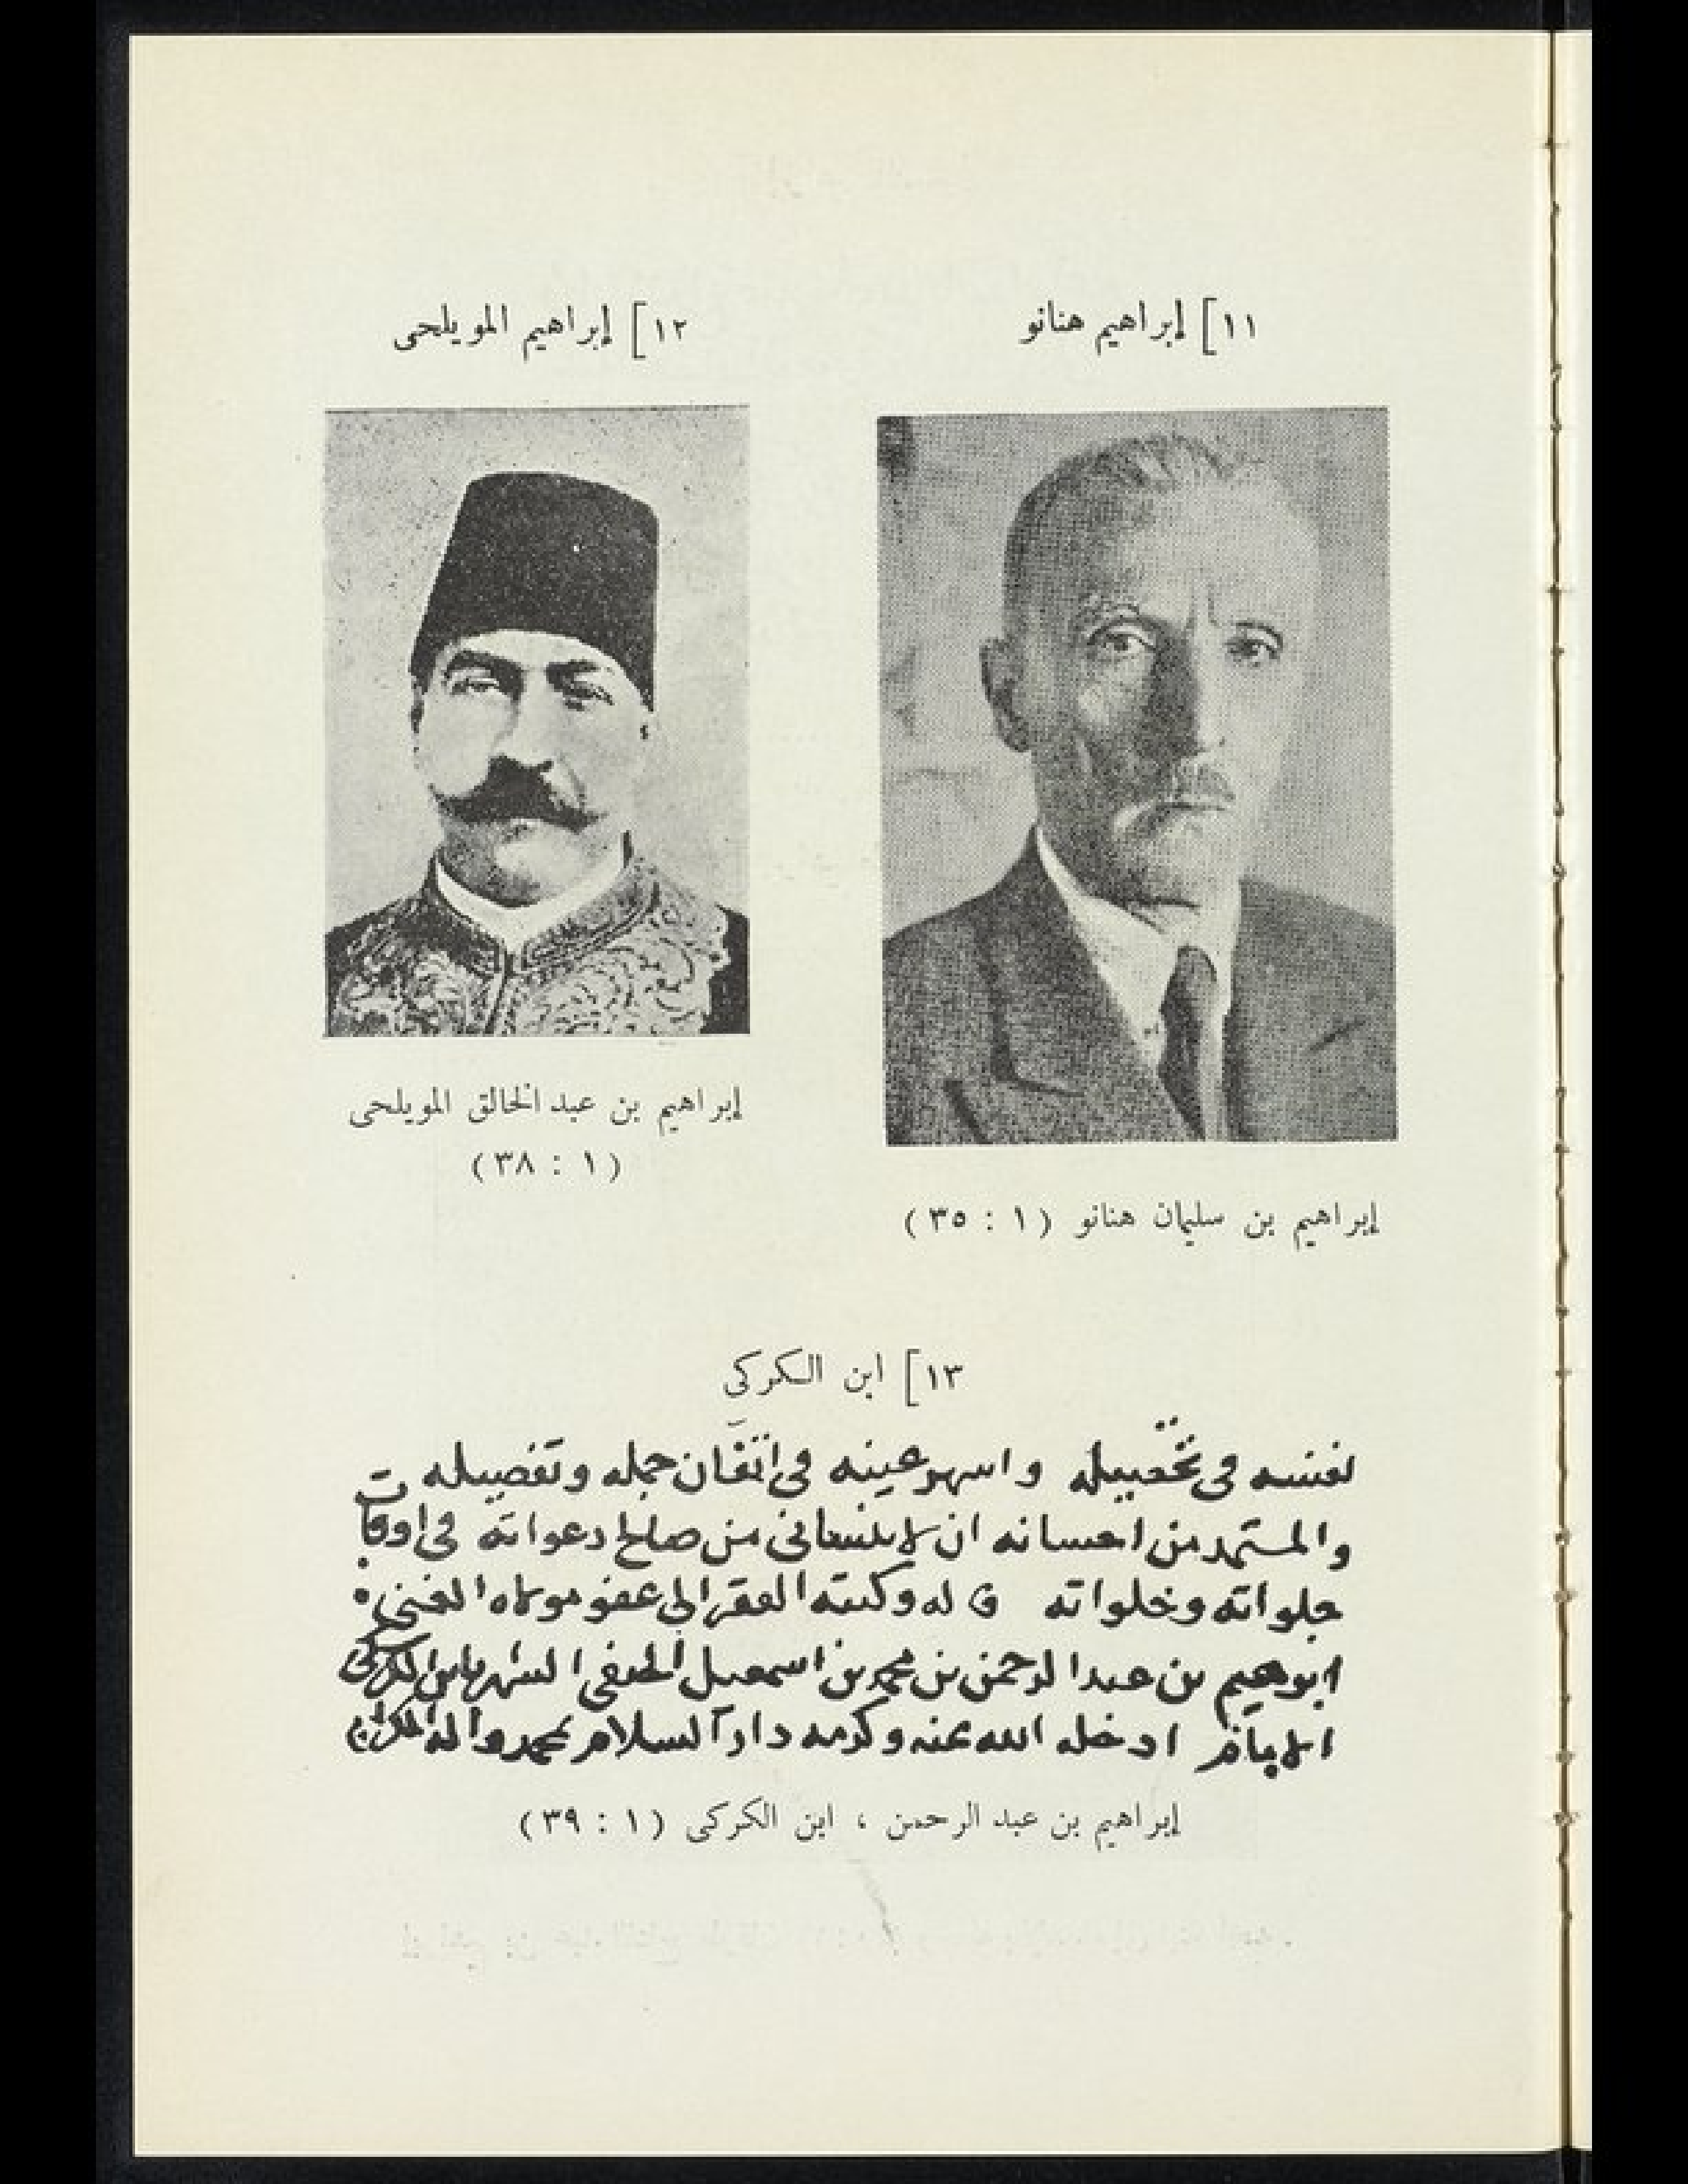 ١١] إبراهيم هنانو
١٢] إبراهيم المويلحى
إبراهيم بن سليمان هنانو (١ : ٣٥)
إبراهيم بن عبد الخالق المويلحى
(١ : ٣٨)
١٣] ابن الكركي
نفسه فى تحصيله واسهر عينه فى اتقان جمله وتفصيله
والمستمد من احسانه ان لا ينسانى من صالح دعواته فى اوقات
جلواته وخلواته قاله وكتبه الفقير الى عفو مولاه الغنى
ابرهيم بن عبد الرحمن بن محمد بن اسمعيل الحنفى الشهير بابن الكركى
الامام ادخله الله بمنه وكرمه دار السلام بمحمد واله
إبراهيم بن عبد الرحمن ، ابن الكركى (١ : ٣٩)